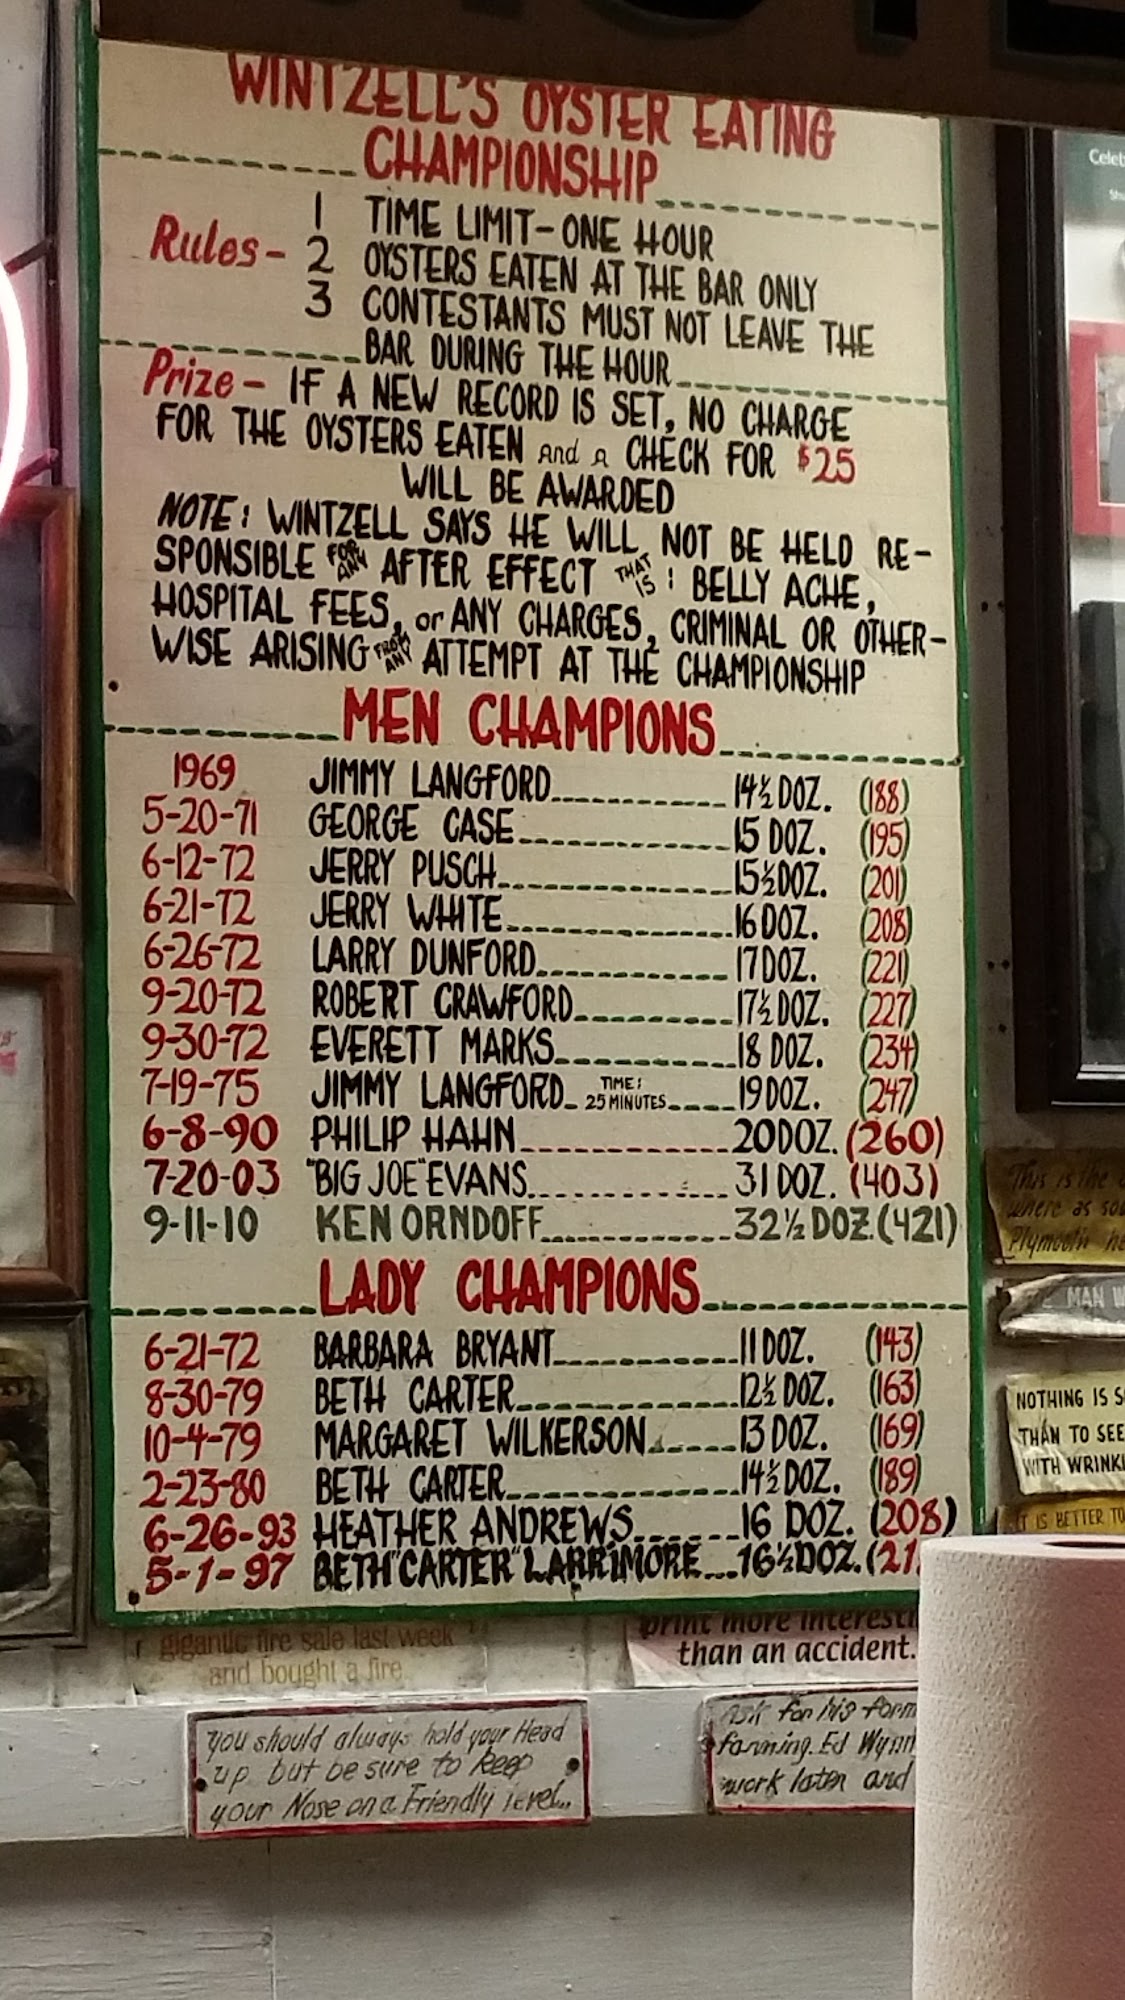 WINTZELL'S OYSTER EATING
CHAMPIONSHIP
Rules- 1 TIME LIMIT-ONE HOUR
2 OYSTERS EATEN AT THE BAR ONLY
3 CONTESTANTS MUST NOT LEAVE THE
BAR DURING THE HOUR
Prize- IF A NEW RECORD IS SET, NO CHARGE
FOR THE OYSTERS EATEN And A CHECK FOR $25
WILL BE AWARDED
NOTE: WINTZELL SAYS HE WILL NOT BE HELD RE-
SPONSIBLE FOR ANY AFTER EFFECT THAT IS: BELLY ACHE,
HOSPITAL FEES, or ANY CHARGES, CRIMINAL OR OTHER-
WISE ARISING FROM ANY ATTEMPT AT THE CHAMPIONSHIP
MEN CHAMPIONS
1969 JIMMY LANGFORD 14½ DOZ. (188)
5-20-71 GEORGE CASE 15 DOZ. (195)
6-12-72 JERRY PUSCH 15½ DOZ. (201)
6-21-72 JERRY WHITE 16 DOZ. (208)
6-26-72 LARRY DUNFORD 17 DOZ. (221)
9-20-72 ROBERT CRAWFORD 17½ DOZ. (227)
9-30-72 EVERETT MARKS 18 DOZ. (234)
7-19-75 JIMMY LANGFORD TIME: 25 MINUTES 19 DOZ. (247)
6-8-90 PHILIP HAHN 20 DOZ. (260)
7-20-03 "BIG JOE" EVANS 31 DOZ. (403)
9-11-10 KEN ORNDOFF 32½ DOZ. (421)
LADY CHAMPIONS
6-21-72 BARBARA BRYANT 11 DOZ. (143)
8-30-79 BETH CARTER 12½ DOZ. (163)
10-4-79 MARGARET WILKERSON 13 DOZ. (169)
2-23-80 BETH CARTER 14½ DOZ. (189)
6-26-93 HEATHER ANDREWS 16 DOZ. (208)
5-1-97 BETH "CARTER" LARRIMORE 16½ DOZ. (21
gigantic fire sale last week
and bought a fire
print more interesti
than an accident.
you should always hold your Head
up but be sure to keep
your Nose on a Friendly level..
Ask for his form
farming. Ed Wynn
work later and
Celeb
This is the
where as so
Plymouth he
MAN W
NOTHING IS S
THAN TO SEE
WITH WRINKL
IT IS BETTER TO